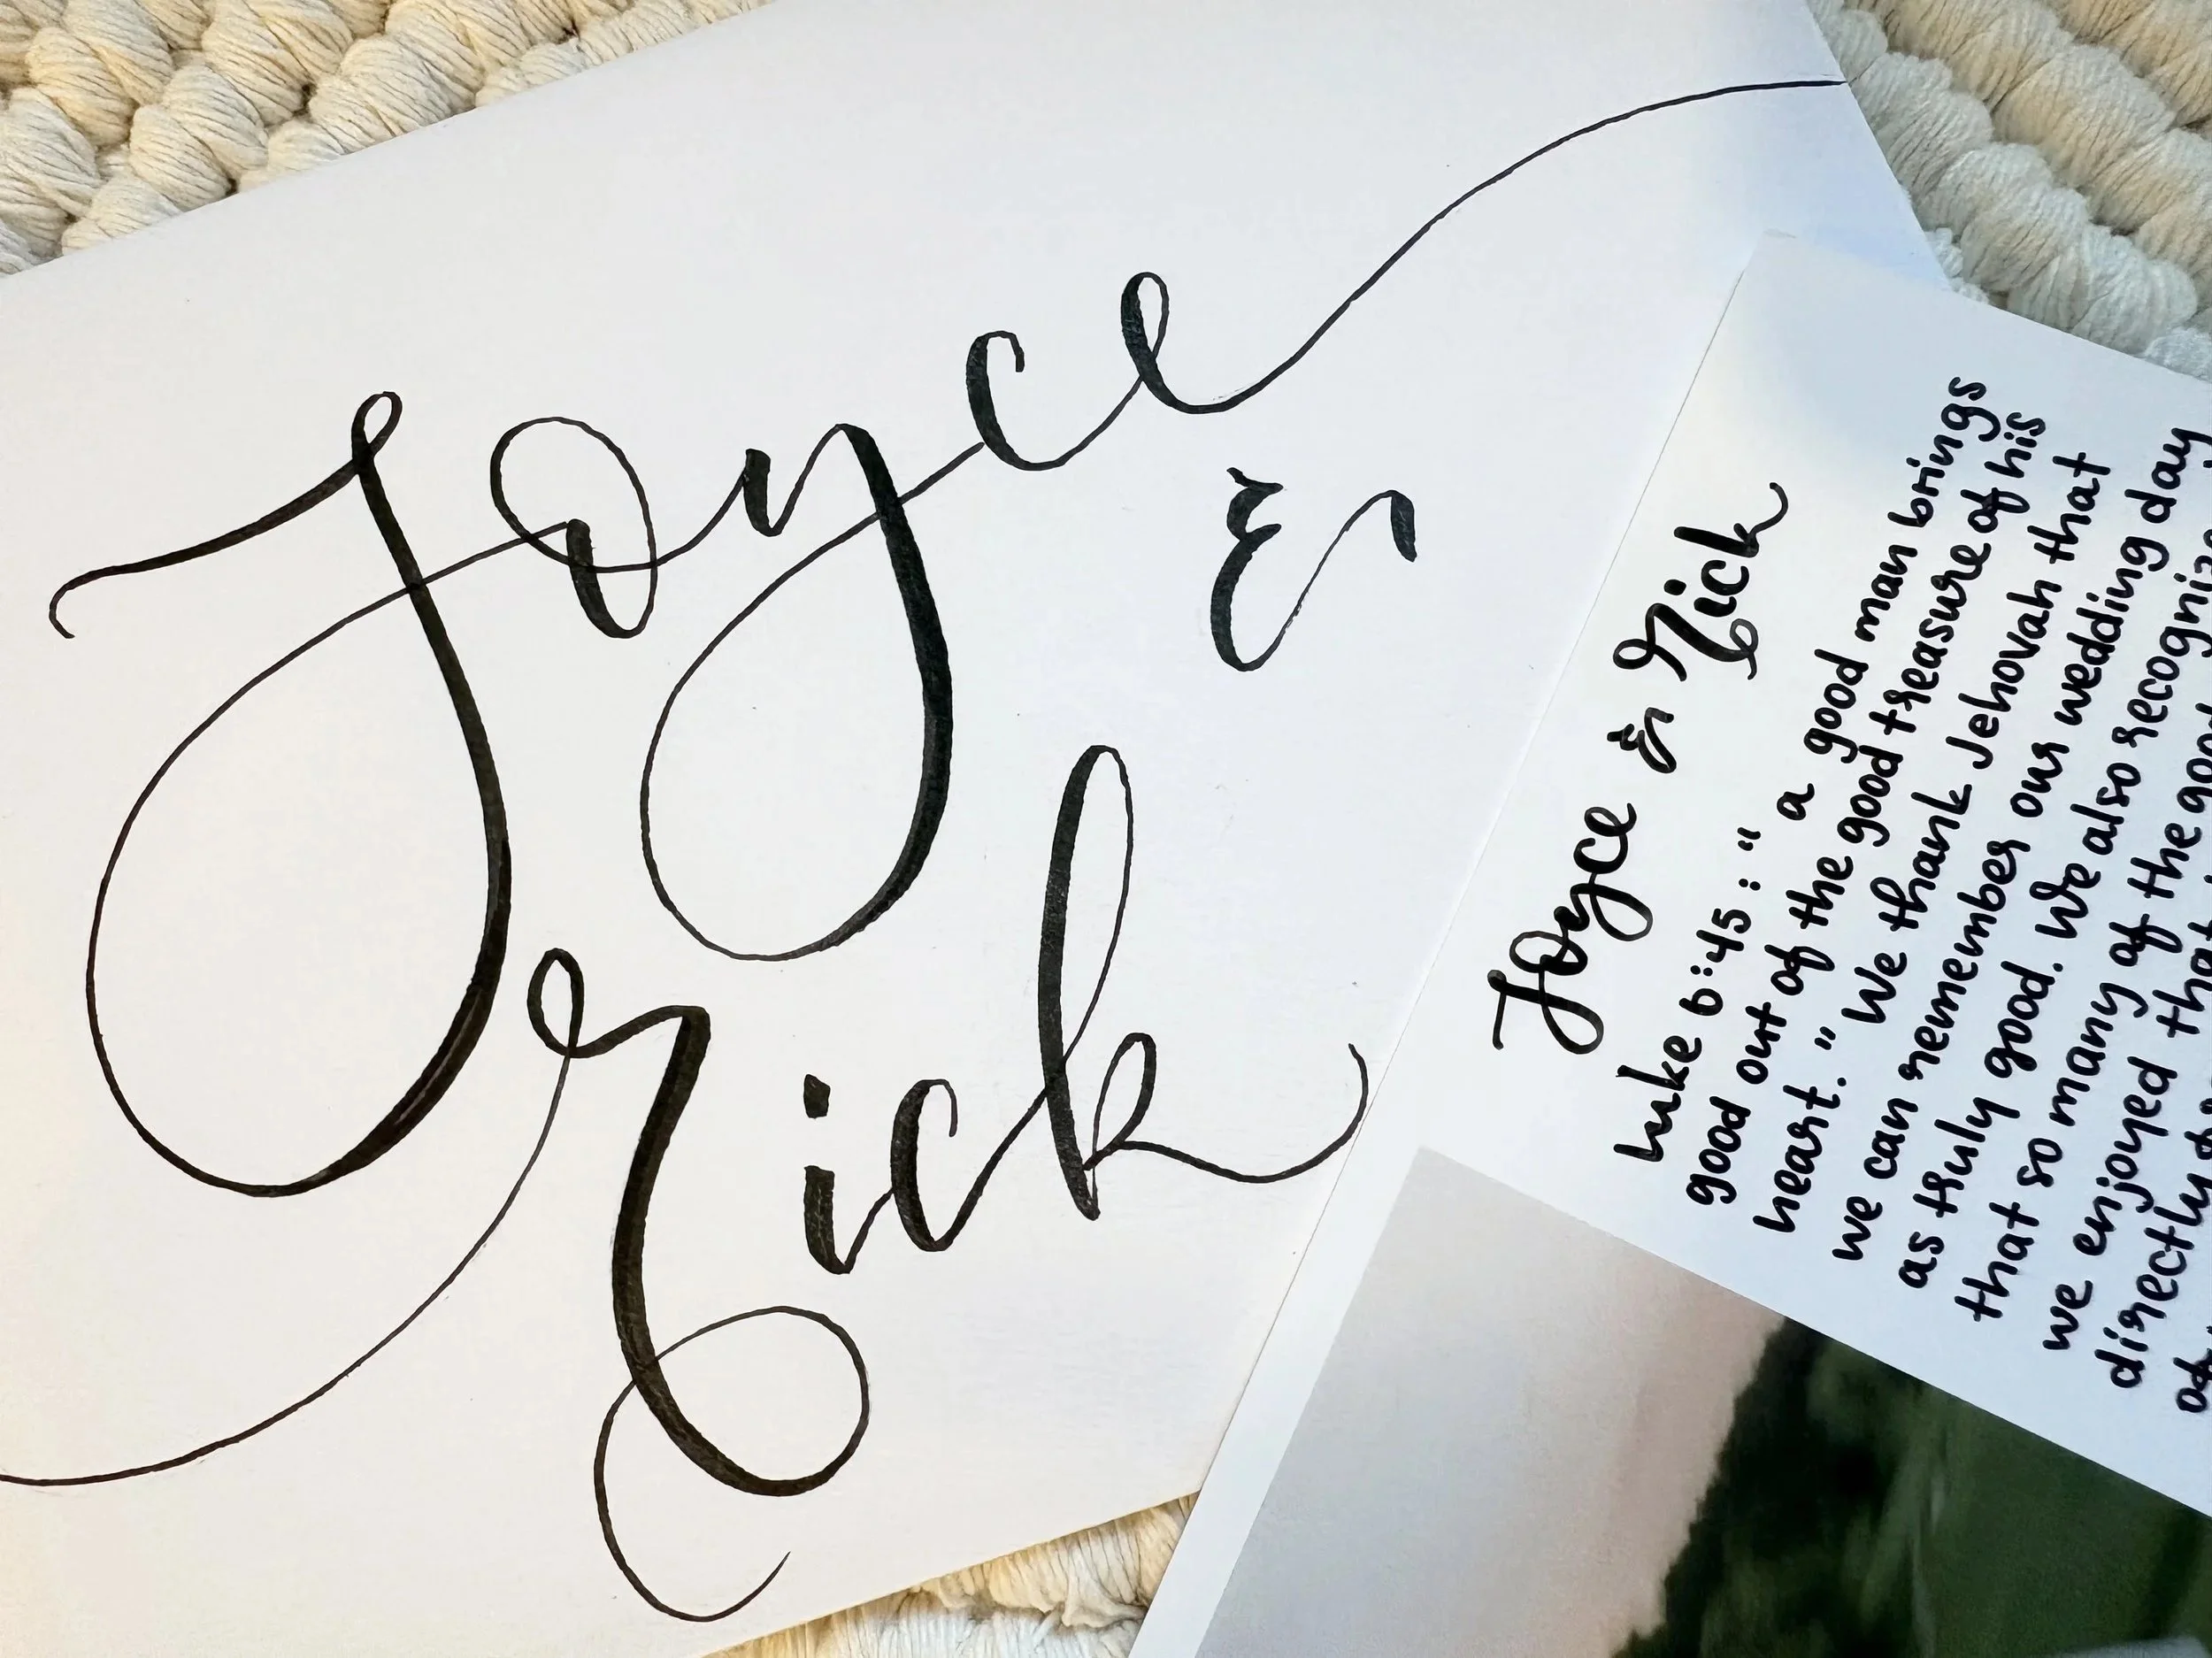 Joyce
&
Rick
Joyce & Rick
Luke 6:45 : " a good man brings
good out of the good treasure of his
heart." We thank Jehovah that
we can remember our wedding day
as truly good. We also recognize
that so many of the good
we enjoyed that
directly